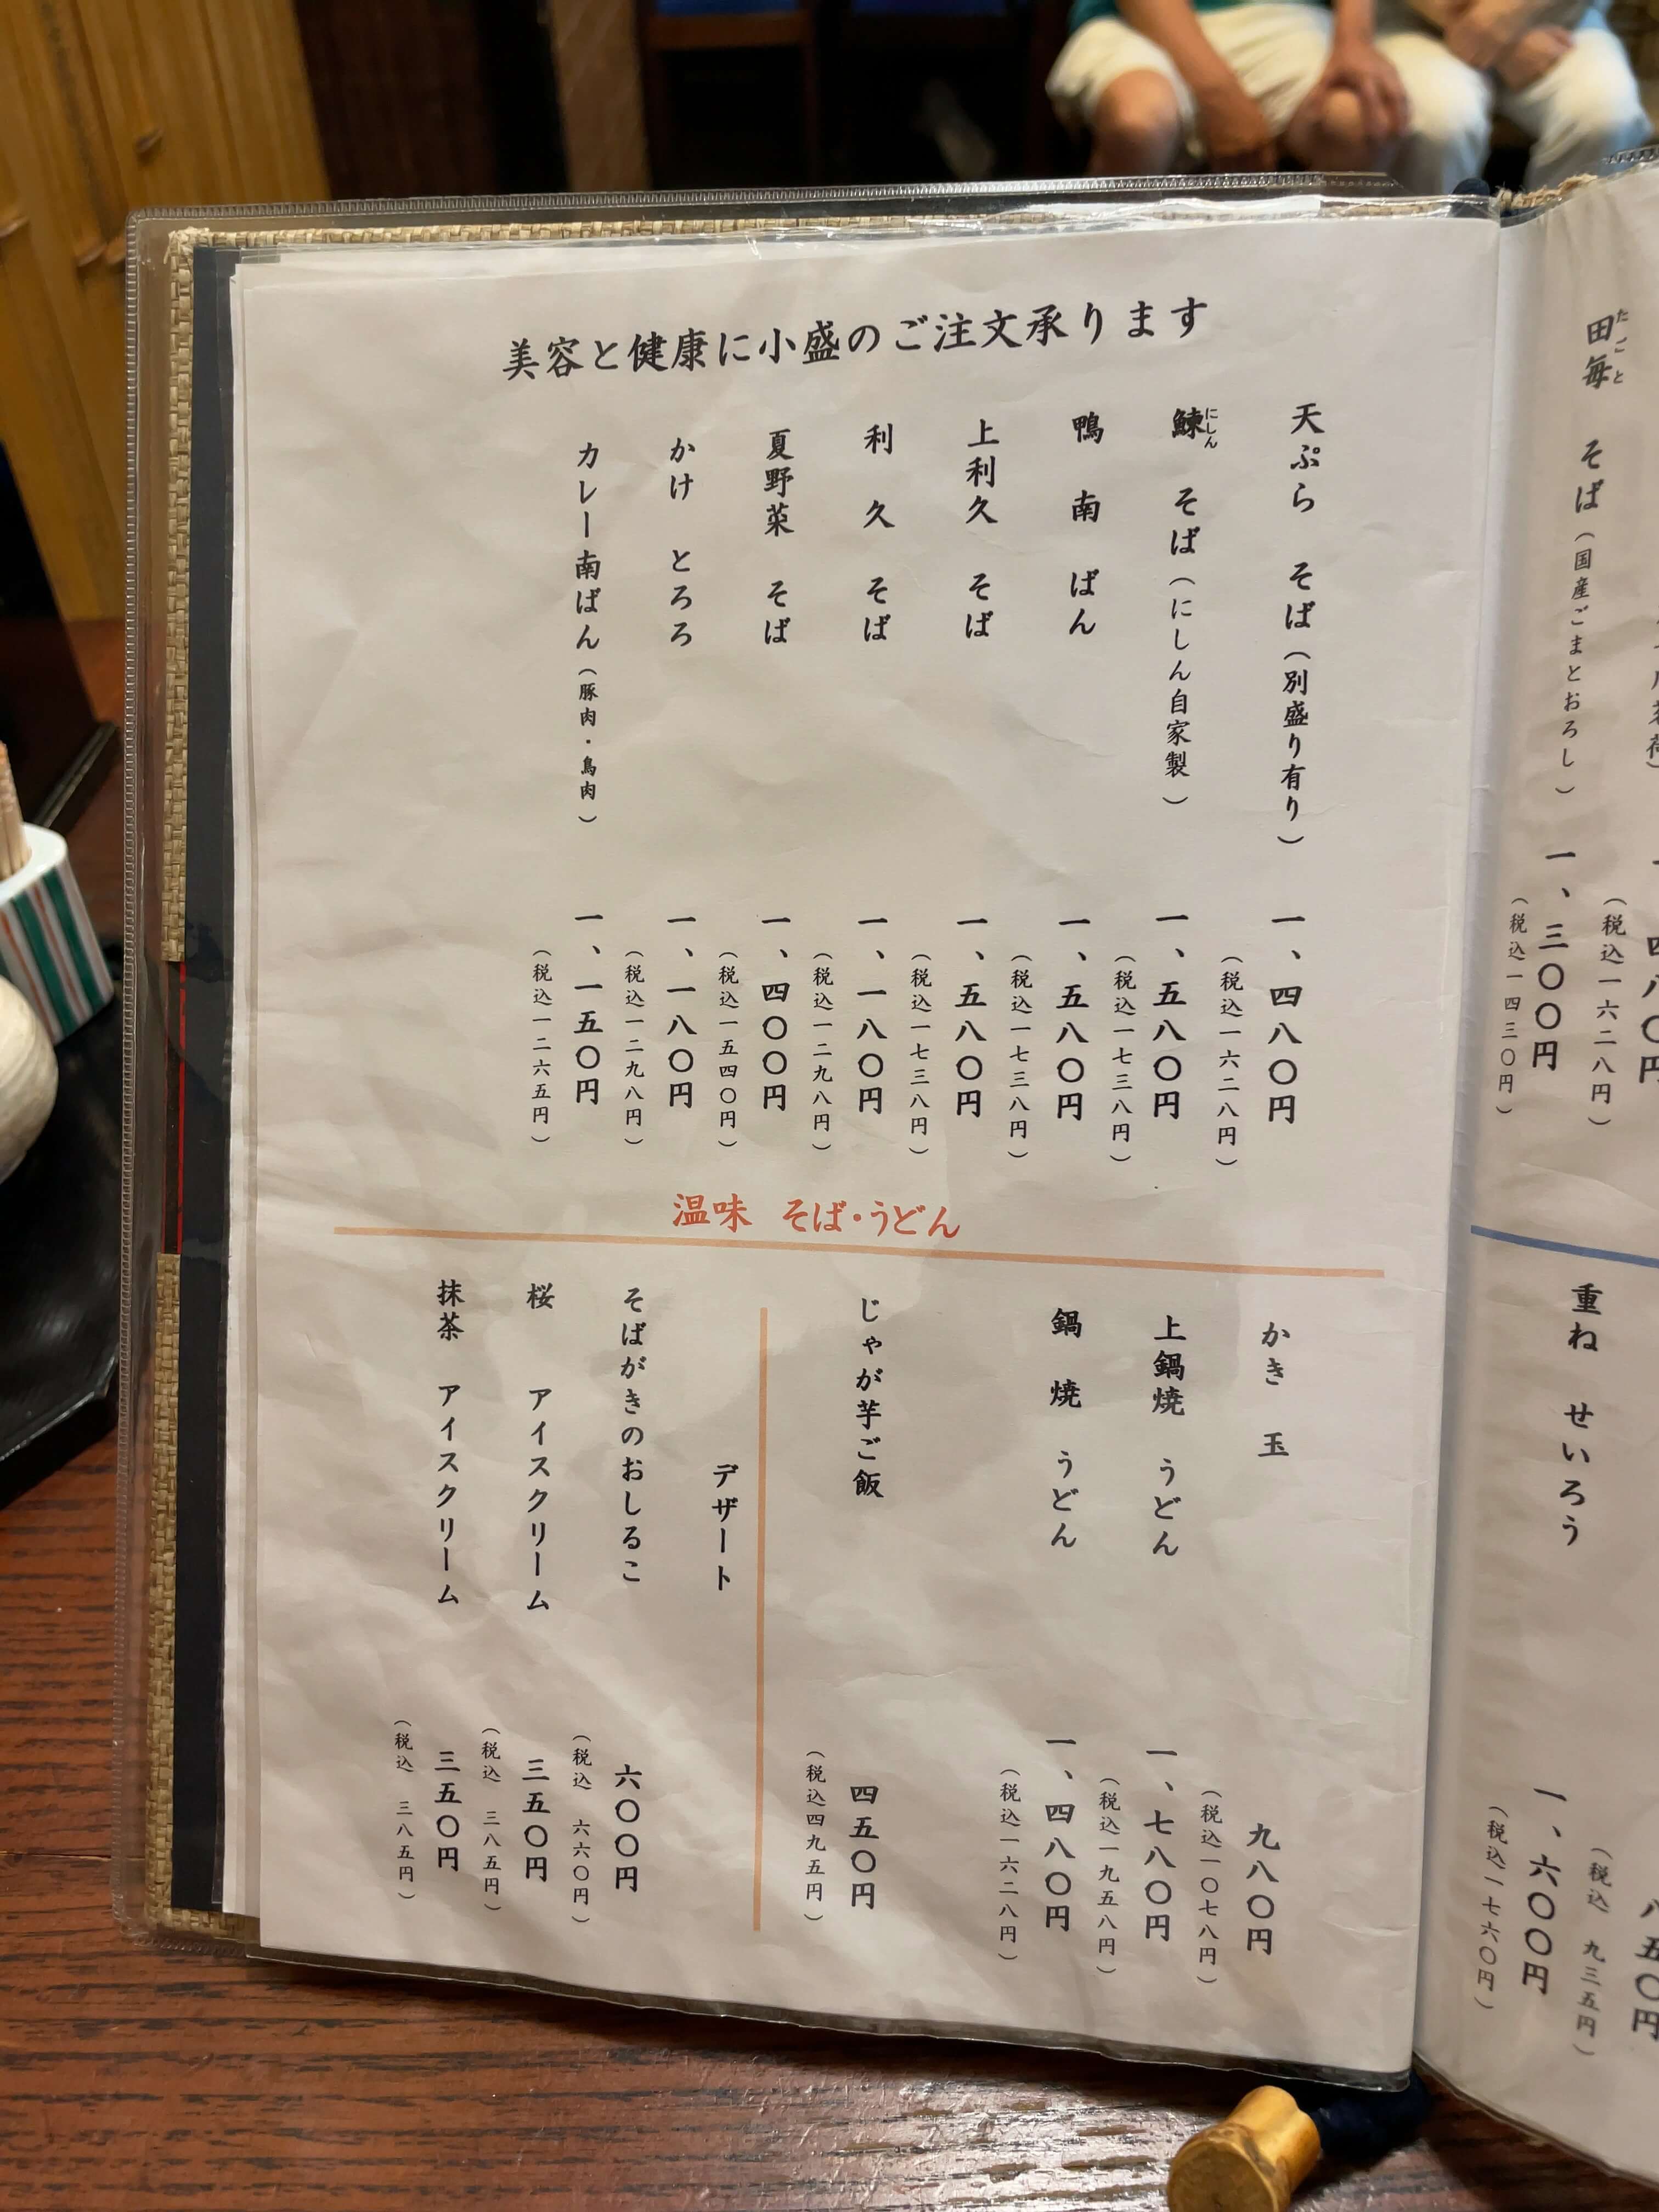 田毎 そば（国産ごまとおろし） 一、三〇〇円
たごと
（税込一六二八円）
（税込一四三〇円）
重ね せいろう 一、六〇〇円
（税込 九三五円）
（税込一七六〇円）
美容と健康に小盛のご注文承ります
天ぷら そば（別盛り有り） 一、四八〇円
（税込一六二八円）
鰊 そば（にしん自家製） 一、五八〇円
にしん
（税込一七三八円）
鴨南ばん 一、五八〇円
（税込一七三八円）
上利久 そば 一、五八〇円
（税込一七三八円）
利久 そば 一、一八〇円
（税込一二九八円）
夏野菜 そば 一、四〇〇円
（税込一五四〇円）
かけ とろろ 一、一八〇円
（税込一二九八円）
カレー南ばん（豚肉・鳥肉） 一、一五〇円
（税込一二六五円）
温味 そば・うどん
かき玉 九八〇円
（税込一〇七八円）
上鍋焼 うどん 一、七八〇円
（税込一九五八円）
鍋焼 うどん 一、四八〇円
（税込一六二八円）
じゃが芋ご飯 四五〇円
（税込四九五円）
デザート
そばがきのおしるこ 六〇〇円
（税込 六六〇円）
桜 アイスクリーム 三五〇円
（税込 三八五円）
抹茶 アイスクリーム 三五〇円
（税込 三八五円）